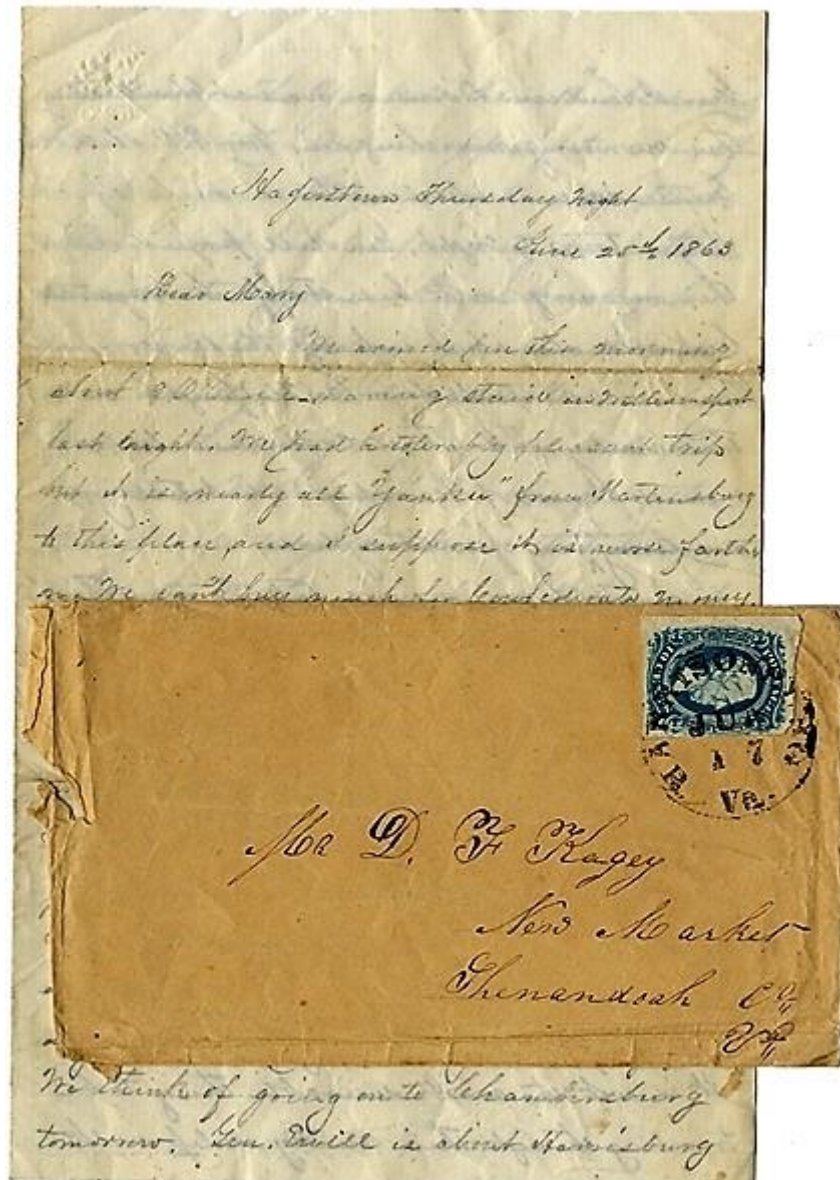 Hagerstown Thursday Night
June 25th 1863
Dear Mary
We arrived here this morning
about 9 O'clock having staid in Williamsport
last night. We had a tolerably pleasant trip
but it is nearly all "Yankee" from Martinsburg
to this place, and I suppose it is worse farther
on. We can't buy much for Confederate money.
JU
17
Va.
Mr D. F Kagey
New Market
Shenandoah Co
Va
We think of going on to Chambersburg
tomorrow. Gen. Ewell is about Harrisburg